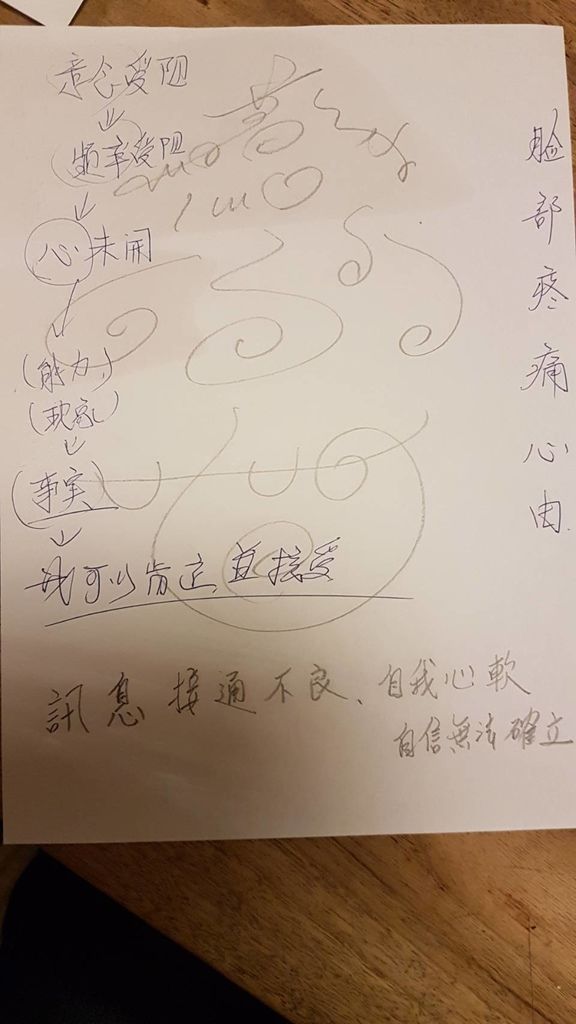 念受阻
↓
頻率受阻
↓
心未開
↓
(能力)
(現象)
↓
(事实)
↓
我可以肯定,並接受
脸部疼痛心由.
訊息接通不良、自我心軟
自信無法確立